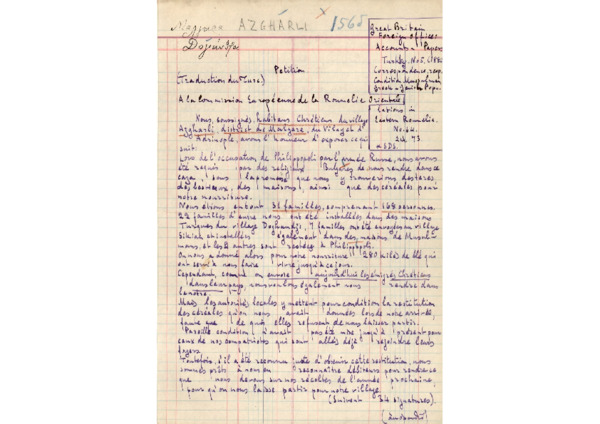 AZGHARLI
1565
Great Britain
Foreign Office
Accounts - Papers
Turkey. No 5. (188
Correspondence resp.
Condition Musulman
Greek - Jewish Popu
Eastern Roumelia.
No. 64.
73
Petition
(Traduction du Turc)
A la Commission Européenne de la Roumélie Orientale
Nous, soussignés, habitants Chrétiens du village
Azgharli, district de Malgara, du Vilayet d'
Adrinople, avons l'honneur d'exposer ce qui
suit:
Lors de l'occupation de Philippopoli par l'armée Russe, nous avons
été requis par des religieux Bulgares de nous rendre dans ce
caza, sous la promesse que nous y trouverions des terres
des bestiaux, des maisons, ainsi que des céréales pour
notre nourriture.
Nous étions en tout 35 familles, comprenant 168 personnes.
22 familles d'entre nous ont été installées dans des maisons
Turques du village 7 familles ont été envoyées au village
et installées également dans des maisons de Musul-
mans, et les autres sont restées à Philippopoli.
On nous a donné alors pour notre nourriture 280 kilés de blé qui
ont servi à nous faire vivre jusqu'à ce jour.
Cependant, comme on envoie aujourd'hui les émigrés Chrétiens
dans leur pays, nous voulons également nous rendre dans
le nôtre.
Mais les autorités locales y mettent pour condition la restitution
des céréales qu'on nous avait données lors de notre arrivée,
faute que de quoi elles refusent de nous laisser partir.
Pareille condition n'avait pas été mise jusqu'à présent pour
ceux de nos compatriotes qui sont allés déjà rejoindre leurs
foyers.
Toutefois, s'il a été reconnu juste d'obtenir cette restitution, nous
sommes prêts à nous en reconnaître débiteurs pour rendre ce
que nous devons sur nos récoltes de l'année prochaine,
pour qu'on nous laisse partir pour notre village.
(Suivent 34 signatures).